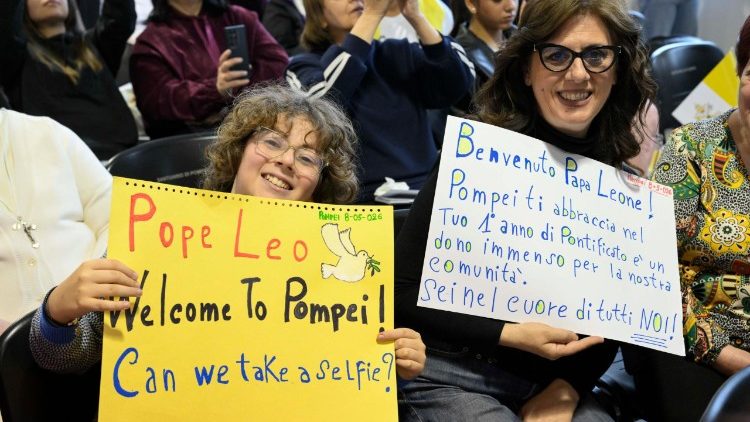 POMPEI 8-05-026
Pope Leo
Welcome To Pompei!
Can we take a selfie?
Benvenuto Papa Leone!
Pompei ti abbraccia nel
Tuo 1° anno di Pontificato e' un
dono immenso per la nostra
comunità.
Sei nel cuore di tutti NOI!